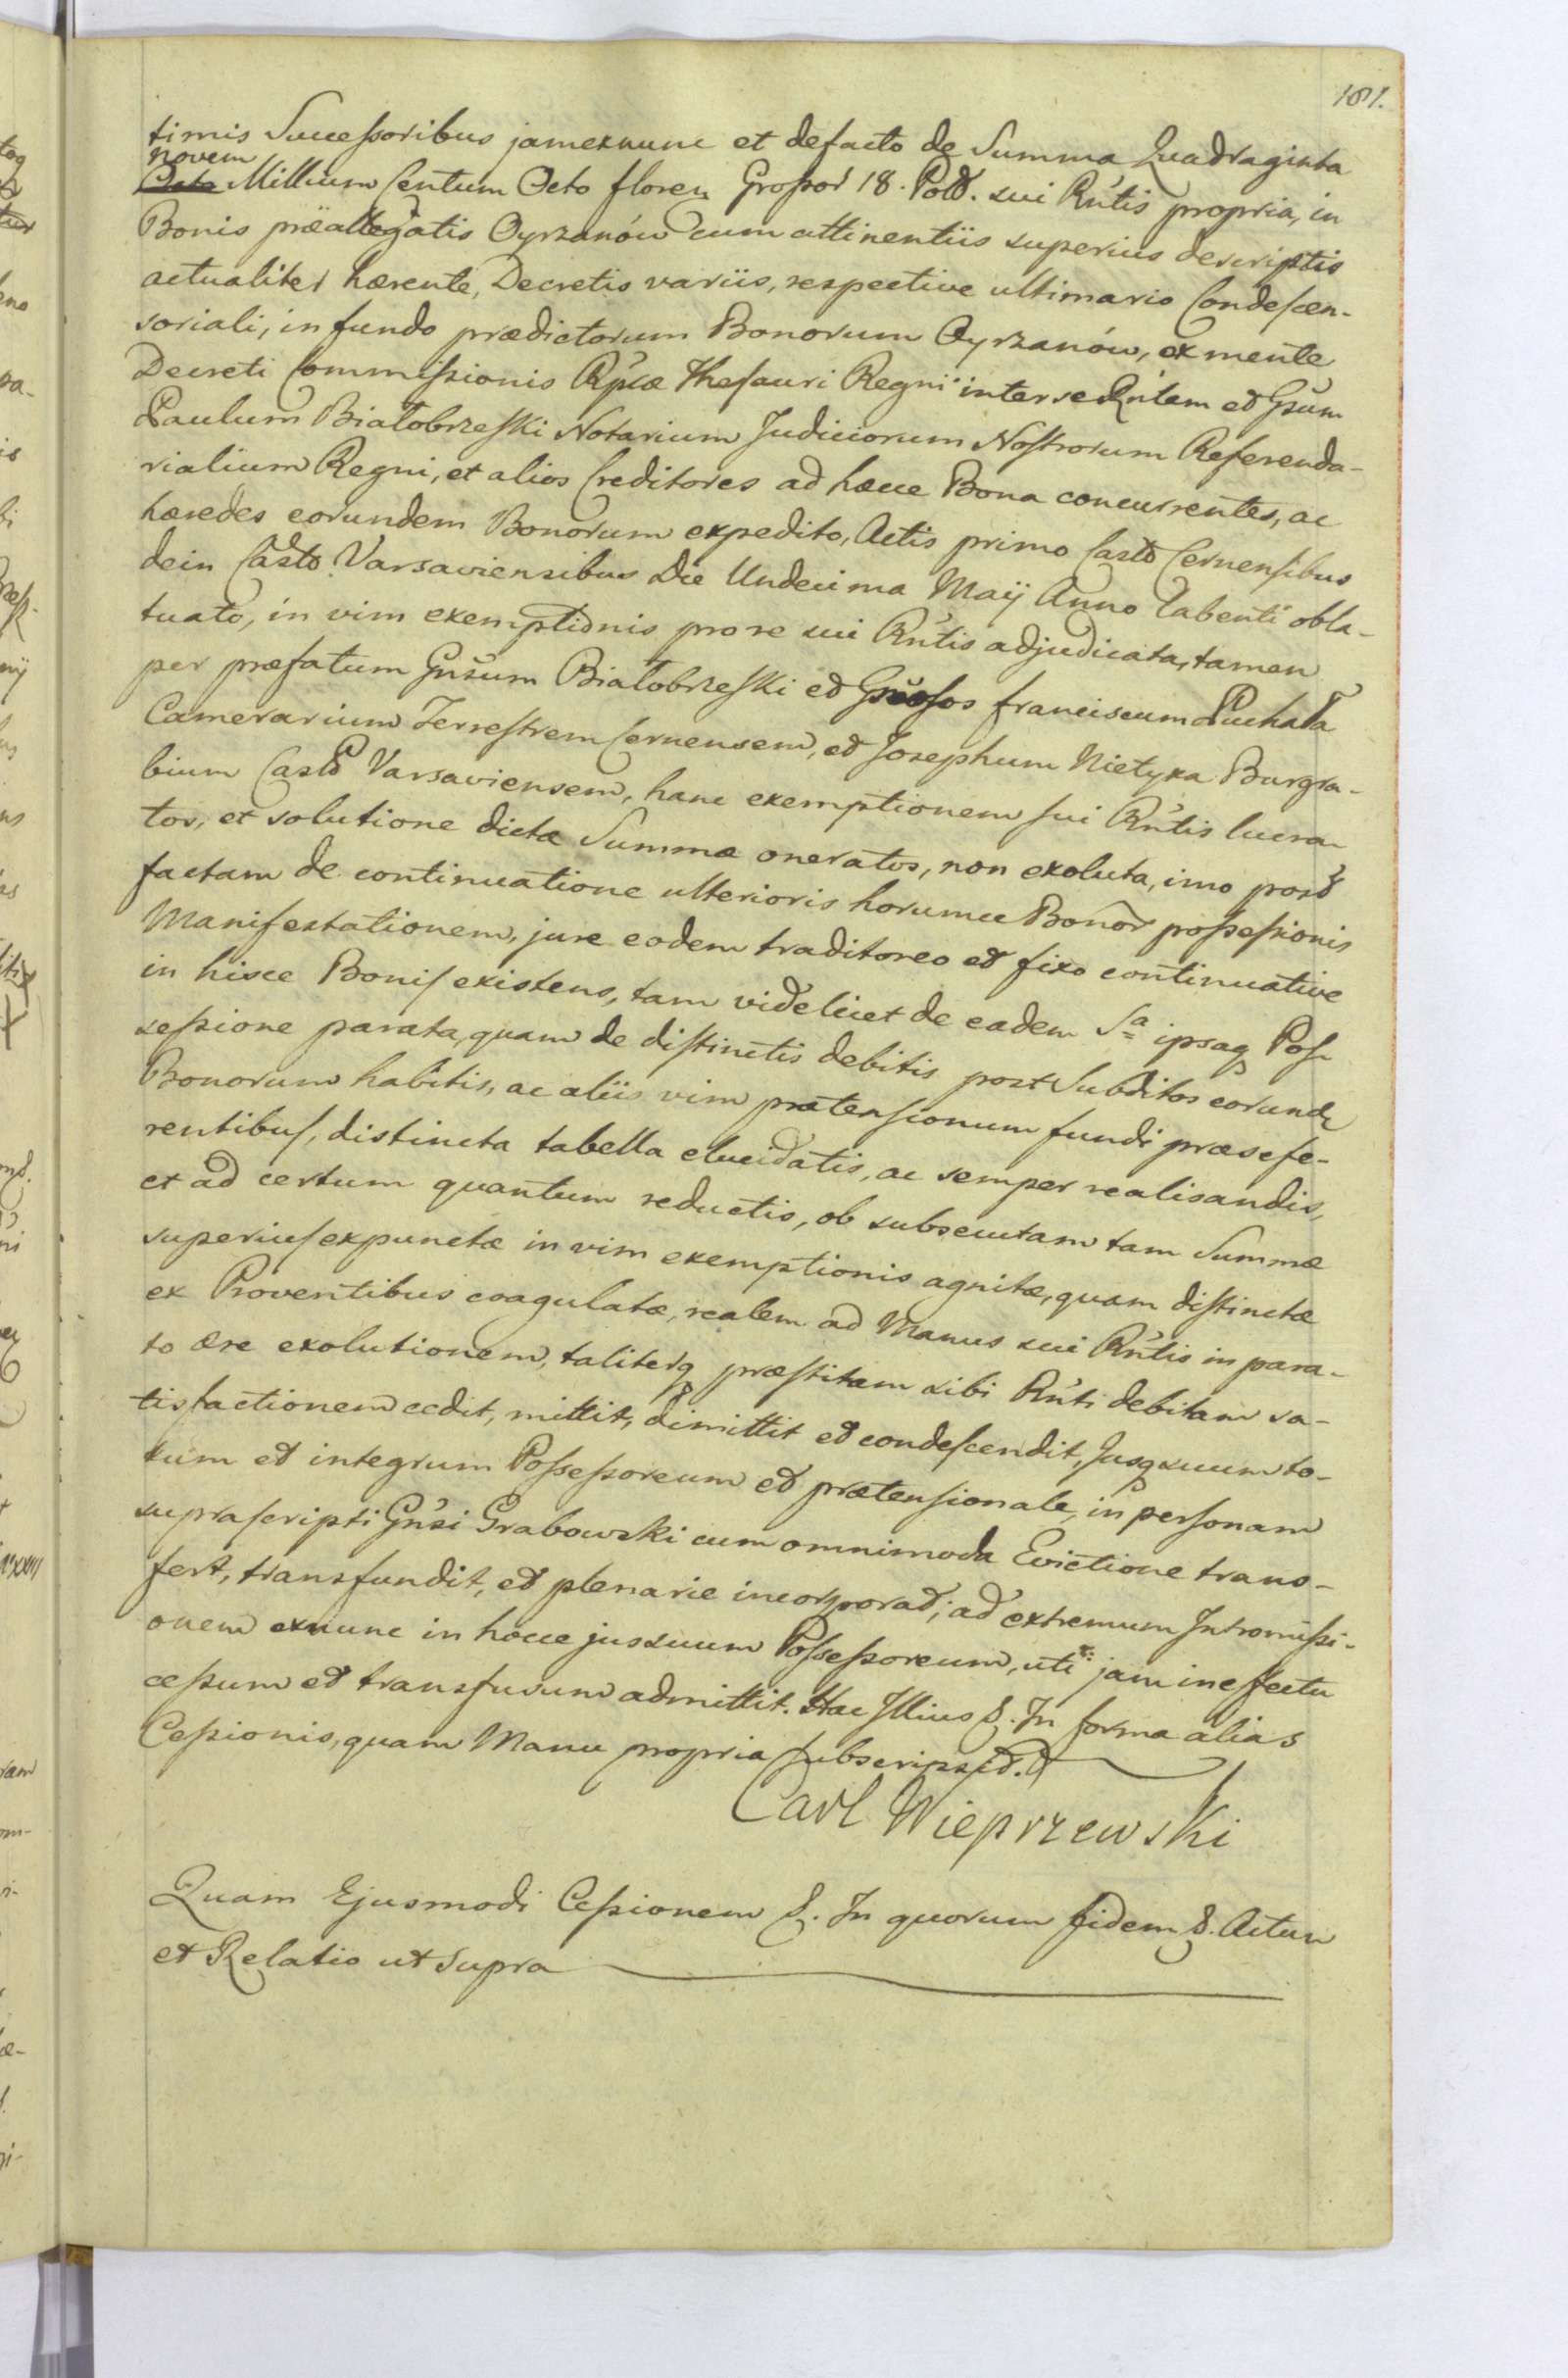 181.
timis Successoribus jamexnunc et defacto de Summa Quadraginta
novem
Octo Millium Centum Octo floren Grossor 18. Pold. sui Rntis propria, in
Bonis præallegatis Oyrzanów cum attinentiis superius descriptis
actualiter hærente, Decretis variis, respective ultimario Condescen-
soriali, in fundo prædictorum Bonorum Oyrzanów, ex mente
Decreti Commissionis Rpcæ Thesauri Regni inter se Rntem et Gsum
Paulum Białobrzeski Notarium Judiciorum Nostrorum Referenda-
rialium Regni, et alios Creditores ad hæcce Bona concurrentes, ac
hæredes eorundem Bonorum expedito, Actis primo Castr Cernensibus
dein Castr Varsaviensibus Die Undecima Maij Anno labenti obla-
tuato, in vim exemptionis pro re sui Rntis adjudicata, tamen
per præfatum Gnsum Białobrzeski et Gnosos Franciscum Puchała
Camerarium Terrestrem Cernensem, et Josephum Nietyxa Burgra-
bium Castr Varsaviensem, hanc exemptionem sui Rntis lucra-
tos, et solutione dictæ Summæ oneratos, non exoluta, imo post
factam de continuatione ulterioris horumce Bonor possessionis
Manifestationem, jure eodem traditoreo et fixo continuative
in hisce Bonis existens, tam videlicet de eadem Sa ipsaq Pos-
sessione parata, quam de distinctis debitis post Subditos eorund
Bonorum habitis, ac aliis vim prætensionum fundi præsefe-
rentibus, distincta tabella elucidatis, ac semper realisandis,
et ad certum quantum reductis, ob subsecutam tam Summæ
superius expunctæ in vim exemptionis agnitæ, quam distinctæ
ex Proventibus coagulatæ, realem ad Manus sui Rntis in para-
to ære exolutionem, taliterq præstitam sibi Rnti debitam sa-
tisfactionem cedit, mittit, dimittit et condescendit, Jusq suum to-
tum et integrum Possessoreum et prætensionale, in personam
suprascripti Gnsi Grabowski cum omnimoda Evictione trans-
fert, transfundit, et plenarie incorporat; ad extremum Intromissi-
onem exnunc in hocce jus suum Possessoreum, uti jam in effectu
cessum et transfusum admittit. Hac Illius &. In forma alias
Cessionis, quam Manu propria subscripsit.
Carl Wieprzewski
Quam Ejusmodi Cessionem &. In quorum fidem &. Actum
et Relatio ut Supra